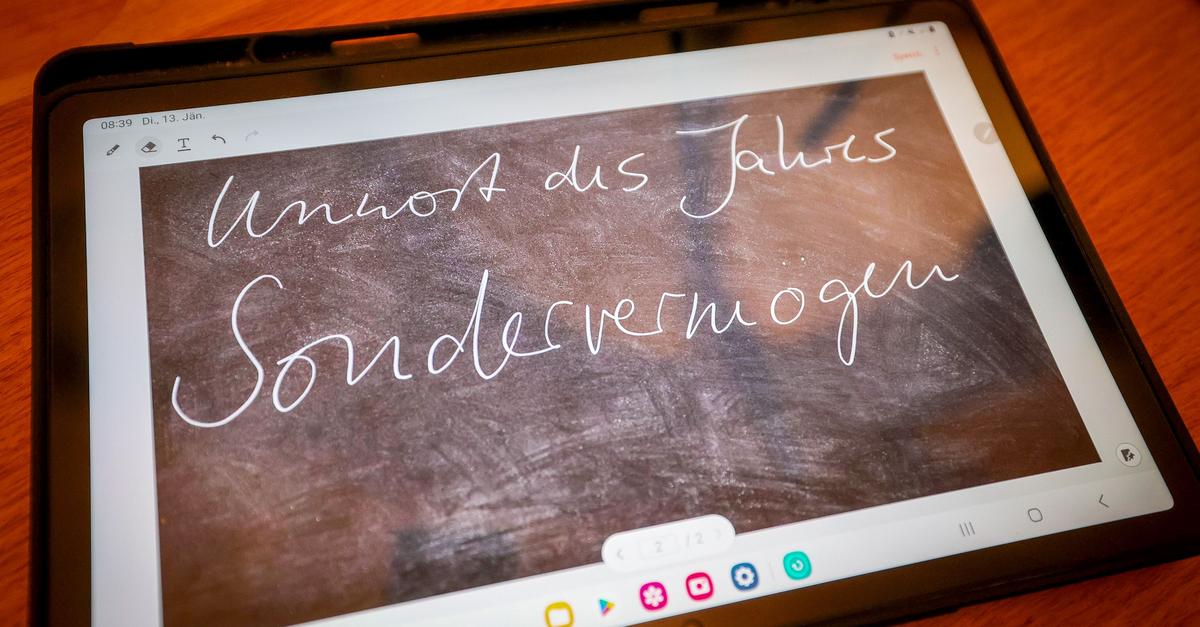 08:39 Di., 13. Jän.
Speich.
Unwort des Jahres
Sondervermögen
2 / 2